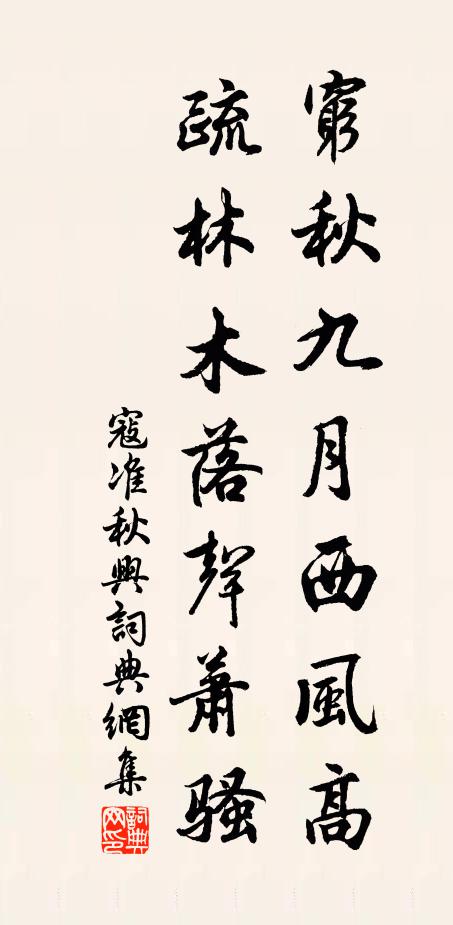 窮秋九月西風高
疏林木落聲蕭騷
寇准秋興詞典網集
詞典網印